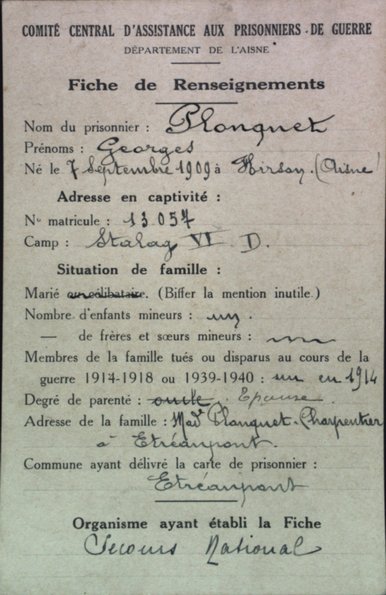 COMITÉ CENTRAL D'ASSISTANCE AUX PRISONNIERS DE GUERRE
DÉPARTEMENT DE L'AISNE
Fiche de Renseignements
Nom du prisonnier : Plonquet
Prénoms : Georges
Né le 7 Septembre 1909 à Hirson. (Aisne)
Adresse en captivité :
N° matricule : 13.057
Camp : Stalag VI D.
Situation de famille :
Marié ou célibataire. (Biffer la mention inutile.)
Nombre d'enfants mineurs : un.
— de frères et sœurs mineurs : un
Membres de la famille tués ou disparus au cours de la
guerre 1914-1918 ou 1939-1940 : un en 1914
Degré de parenté : oncle. Epouse.
Adresse de la famille : Mad. Plonquet-Charpentier
à Etréaupont.
Commune ayant délivré la carte de prisonnier :
Etréaupont
Organisme ayant établi la Fiche
Secours National